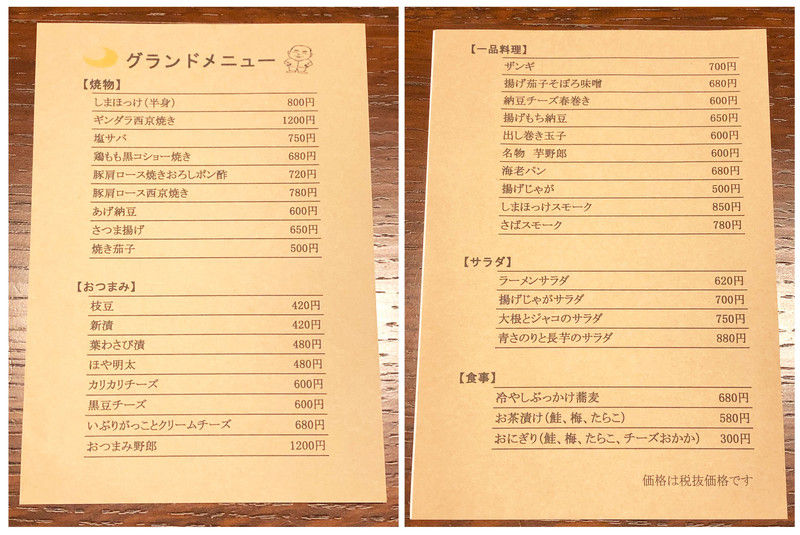 グランドメニュー
【焼物】
しまほっけ(半身) 800円
ギンダラ西京焼き 1200円
塩サバ 750円
鶏もも黒コショー焼き 680円
豚肩ロース焼きおろしポン酢 720円
豚肩ロース西京焼き 780円
あげ納豆 600円
さつま揚げ 650円
焼き茄子 500円
【おつまみ】
枝豆 420円
新漬 420円
葉わさび漬 480円
ほや明太 480円
カリカリチーズ 600円
黒豆チーズ 600円
いぶりがっことクリームチーズ 680円
おつまみ野郎 1200円
【一品料理】
ザンギ 700円
揚げ茄子そぼろ味噌 680円
納豆チーズ春巻き 600円
揚げもち納豆 650円
出し巻き玉子 600円
名物 芋野郎 600円
海老パン 680円
揚げじゃが 500円
しまほっけスモーク 850円
さばスモーク 780円
【サラダ】
ラーメンサラダ 620円
揚げじゃがサラダ 700円
大根とジャコのサラダ 750円
青さのりと長芋のサラダ 880円
【食事】
冷やしぶっかけ蕎麦 680円
お茶漬け(鮭、梅、たらこ) 580円
おにぎり(鮭、梅、たらこ、チーズおかか) 300円
価格は税抜価格です